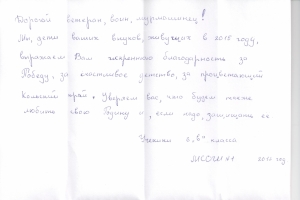 Дорогой ветеран, воин, мурманчанец!
Мы, дети ваших внуков, живущих в 2015 году,
выражаем Вам искреннюю благодарность за
Победу, за счастливое детство, за процветающий
Кольский край. Уверяем вас, что будем также
любить свою Родину и, если надо, защищать её
Ученики 6 „в" класса
МСОШ №1 2015 год